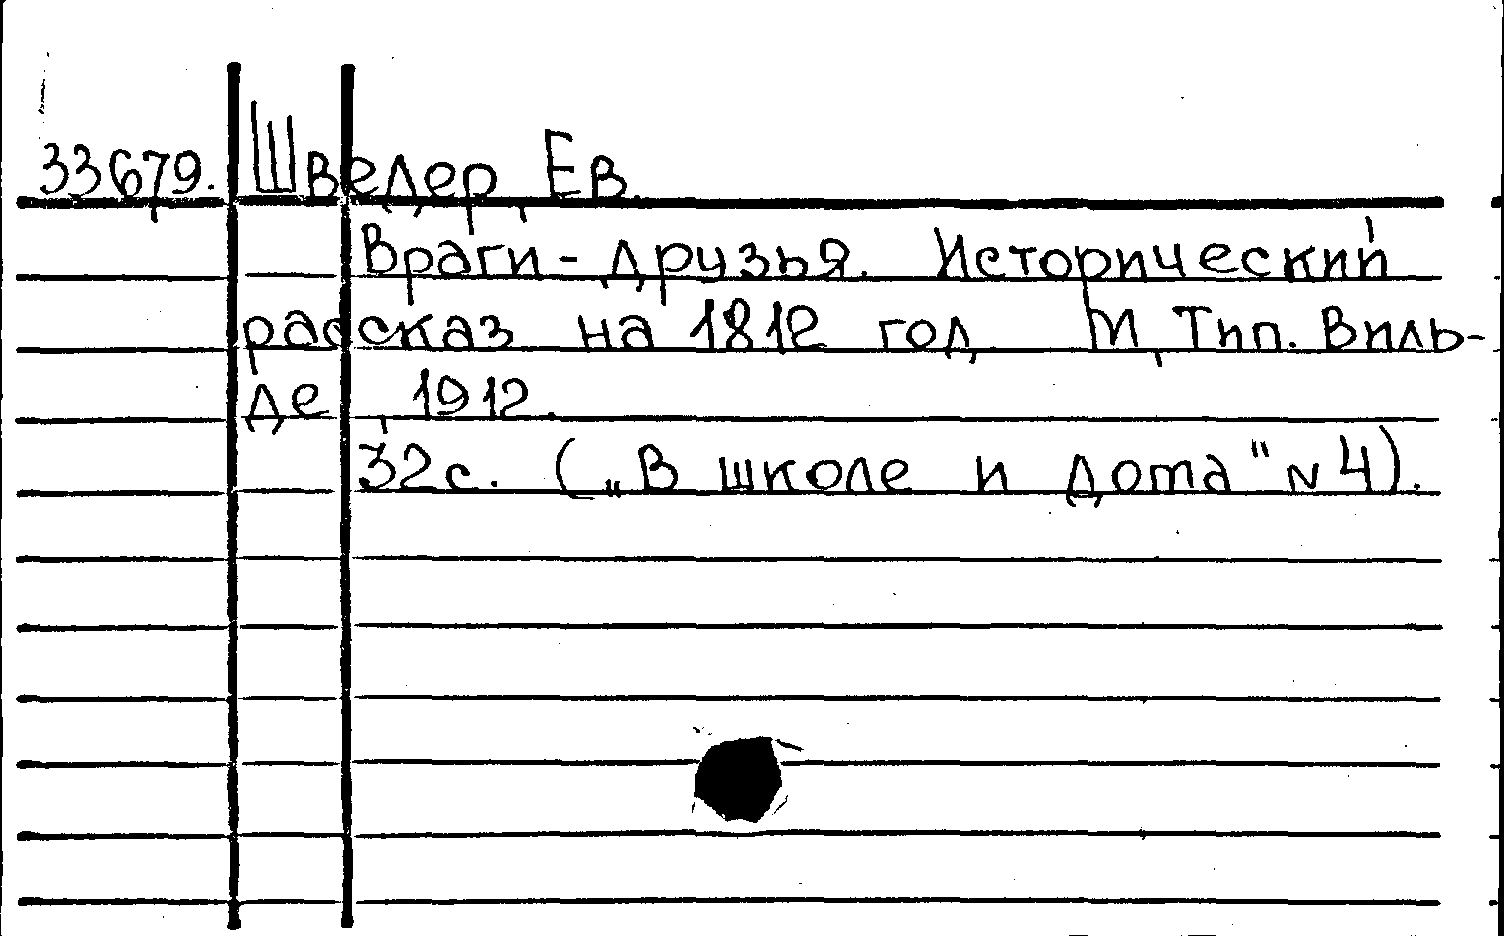 33679. Шведер, Ев.
Враги-друзья. Исторический
рассказ на 1812 год. М, Тип. Виль-
де, 1912.
32с. („В школе и дома" N 4).